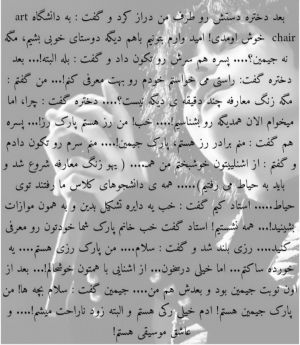 بعد دختره دستش رو طرف من دراز کرد و گفت : به دانشگاه art
chair خوش اومدی! امید وارم بتونیم باهم دیگه دوستای خوبی بشیم، مگه
نه جیمین؟.... پسره هم سرش رو تکون داد و گفت : بله البته!... بعد
دختره گفت: راستی می خواستم خودم رو بهت معرفی کنم!... من گفتم :
مگه زنگ معارفه چند دقیقه ی دیگه نیست؟.... دختره گفت : چرا، اما
میخوام الان همدیگه رو بشناسیم!.... خب! من رز هستم پارک رز!... پسره
هم گفت : منم برادر رز هستم، پارک جیمین!.... منم سرم رو تکون دادم
و گفتم : از اشناییتون خوشبختم من همـ.... ( یهو زنگ معارفه شروع شد و
باید به حیاط می رفتیم)..... همه ی دانشجوهای کلاس ما رفتند توی
حیاط..... استاد کیم گفت : خب یه دایره تشکیل بدین و به همون موازات
بشینید!... همه نشستیم! استاد گفت خب خانم پارک شما خودتون رو معرفی
کنید.... رزی بلند شد و گفت : سلام.... من پارک رزی هستم.... یه
خورده ساکتم... اما خیلی درسخون... از اشنایی با همتون خوشحالم!... بعد از
اون نوبت جیمین بود و بعدش هم من.... جیمین گفت : سلام بچه ها! من
پارک جیمین هستم! ادم خیلی رکی هستم و البته زود ناراحت میشم!.... و
عاشق موسیقی هستم!